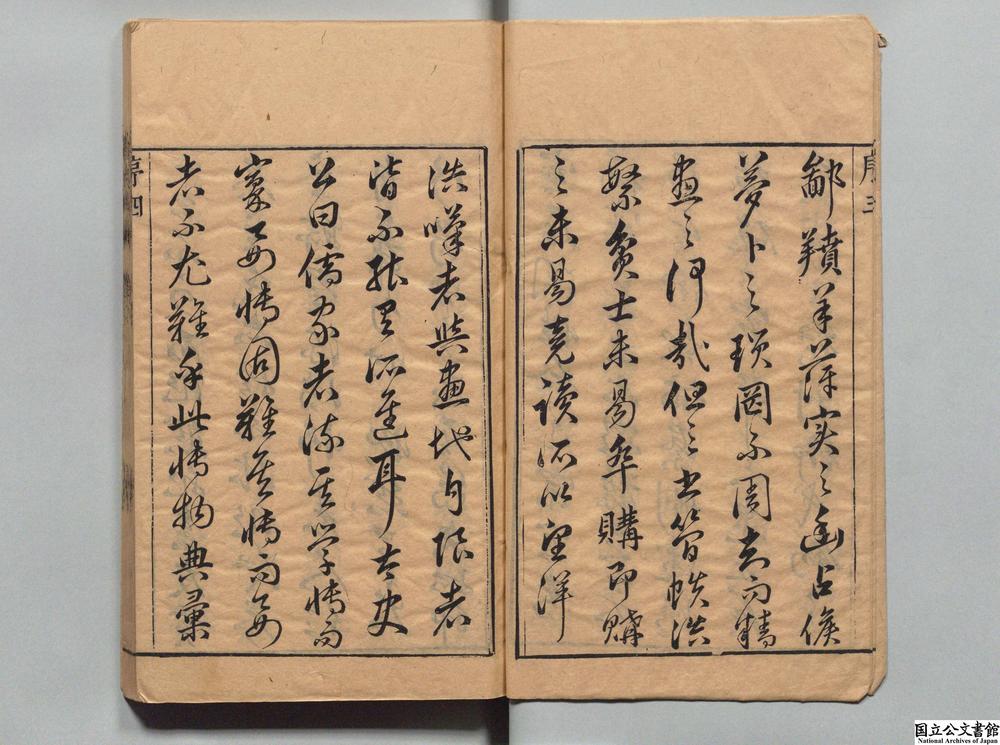 序三
鄙羵羊萍実之幽占候
夢卜之瑣罔不周而精
畫之何哉但之書簡帙浩
繁貧士未易卒購即購
之未易竟讀所以望洋
浩嘆者與畫地自限者
皆不能所進耳太史
公曰儒家者流其学博而
寡要博固難矣博而要
者不尤難乎此博物典彙
序四
国立公文書館
National Archives of Japan